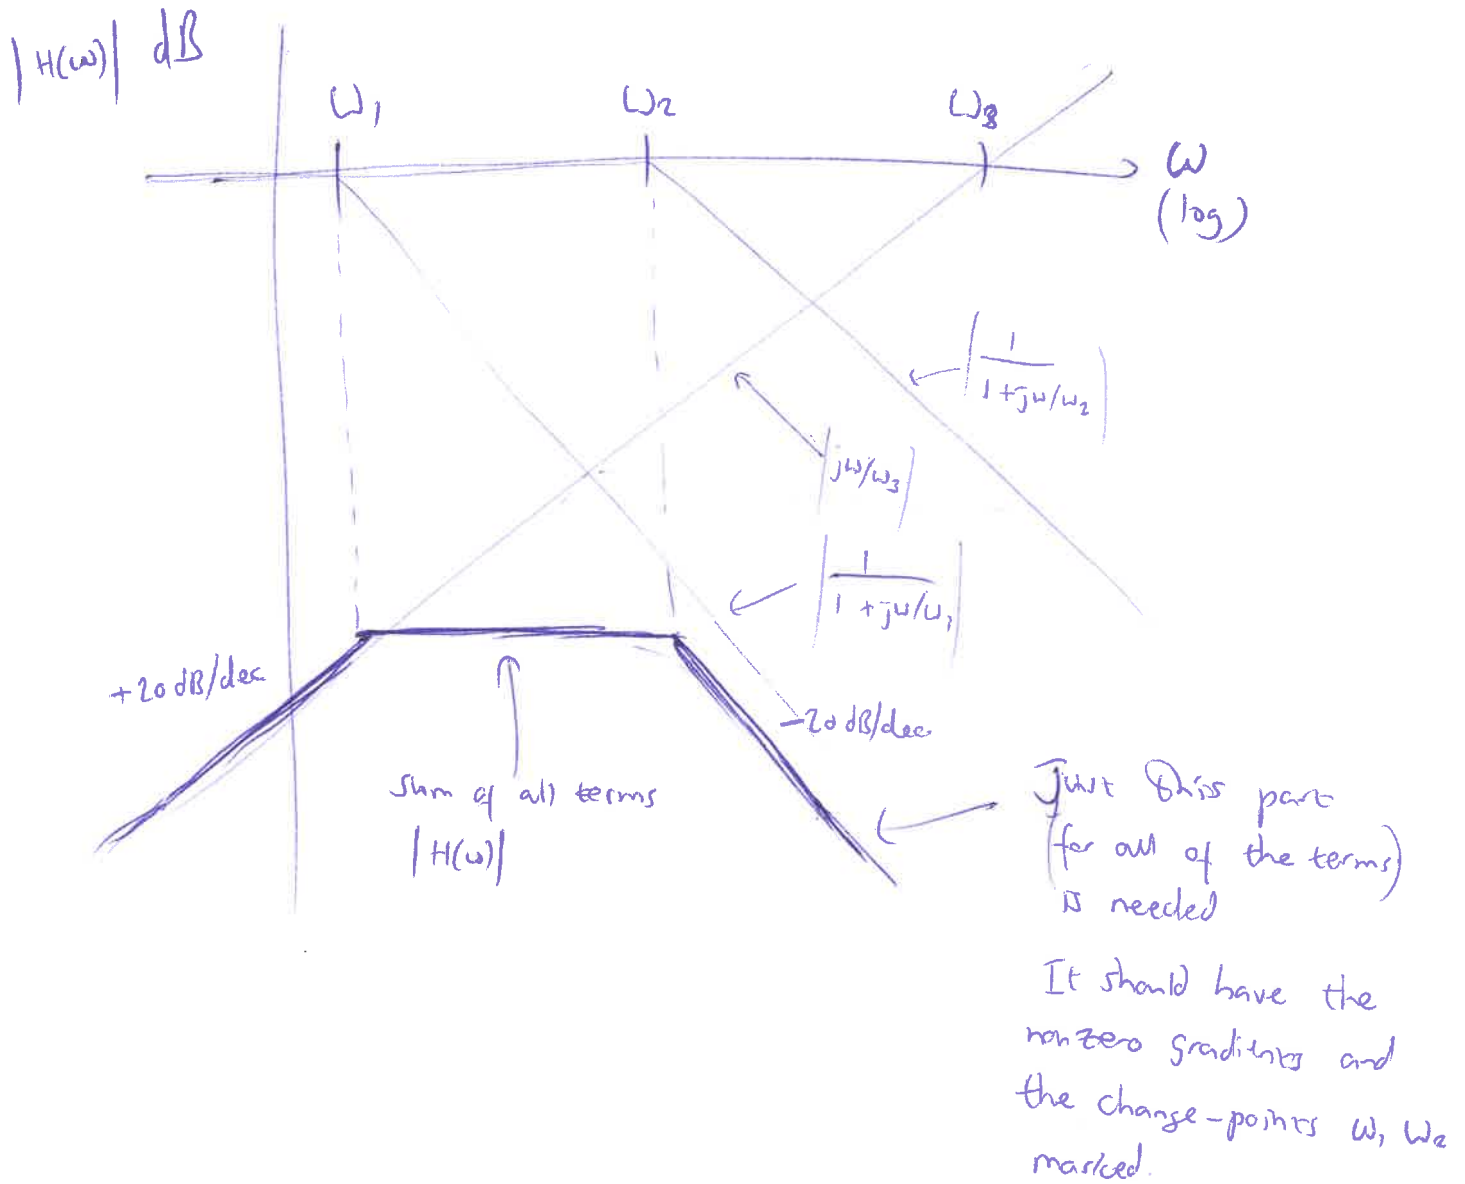 |H(ω)| dB
ω₁
ω₂
ω₃
ω
(log)
|1/(1+jω/ω₂)|
|jω/ω₃|
|1/(1+jω/ω₁)|
+20 dB/dec
-20 dB/dec
sum of all terms
|H(ω)|
Just this part
(for all of the terms)
is needed
It should have the
nonzero gradients and
the change-points ω₁ ω₂
marked.